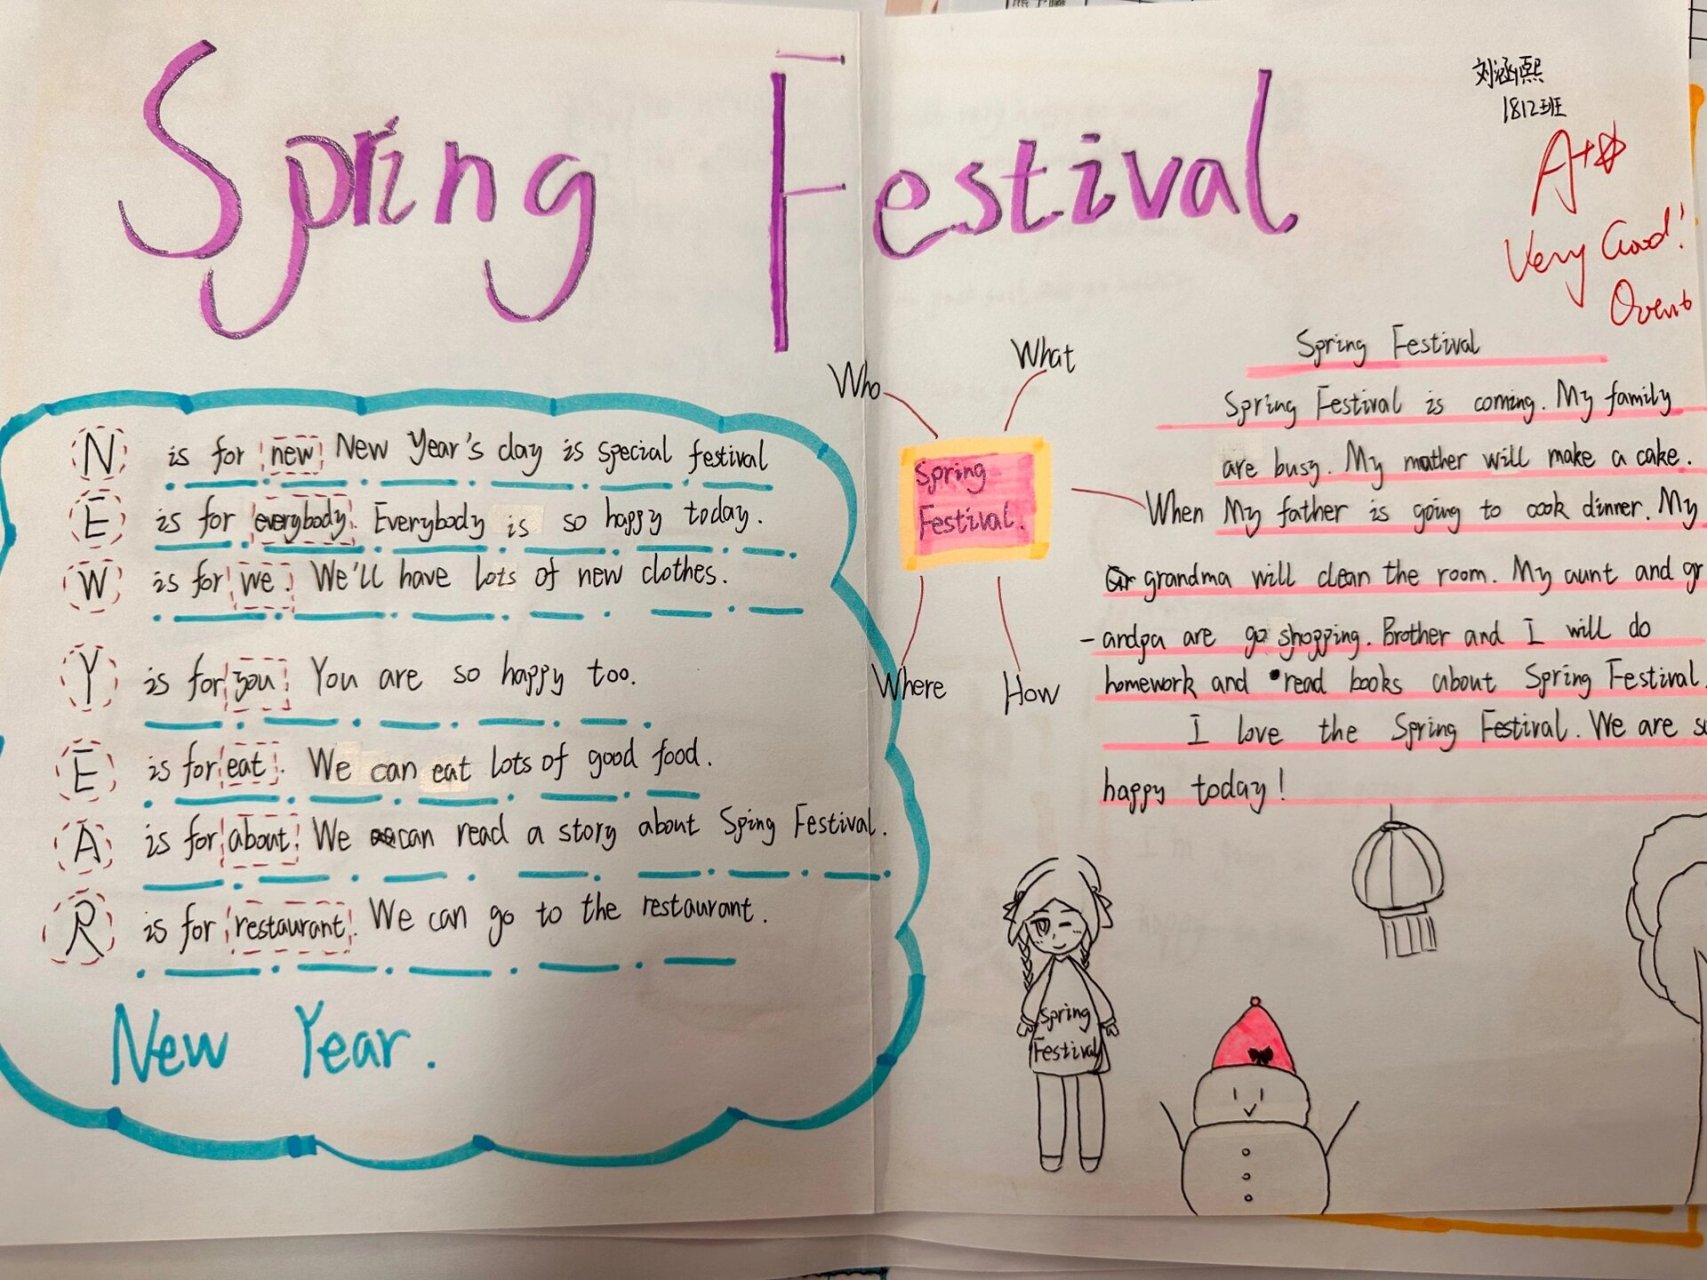 Spring Festival
刘涵熙
1812班
A+
Very Good!
N is for new New Year's day is special festival
E is for everybody. Everybody is so happy today.
W is for we. We'll have lots of new clothes.
Y is for you. You are so happy too.
E is for eat. We can eat lots of good food.
A is for about. We can read a story about Sping Festival.
R is for restaurant. We can go to the restaurant.
New Year.
Who
What
Spring
Festival.
When
Where
How
Spring Festival
Spring Festival is coming. My family
are busy. My mother will make a cake.
My father is going to cook dinner. My
grandma will clean the room. My aunt and gr
-andpa are go shopping. Brother and I will do
homework and read books about Spring Festival.
I love the Spring Festival. We are so
happy today!
Spring
Festival